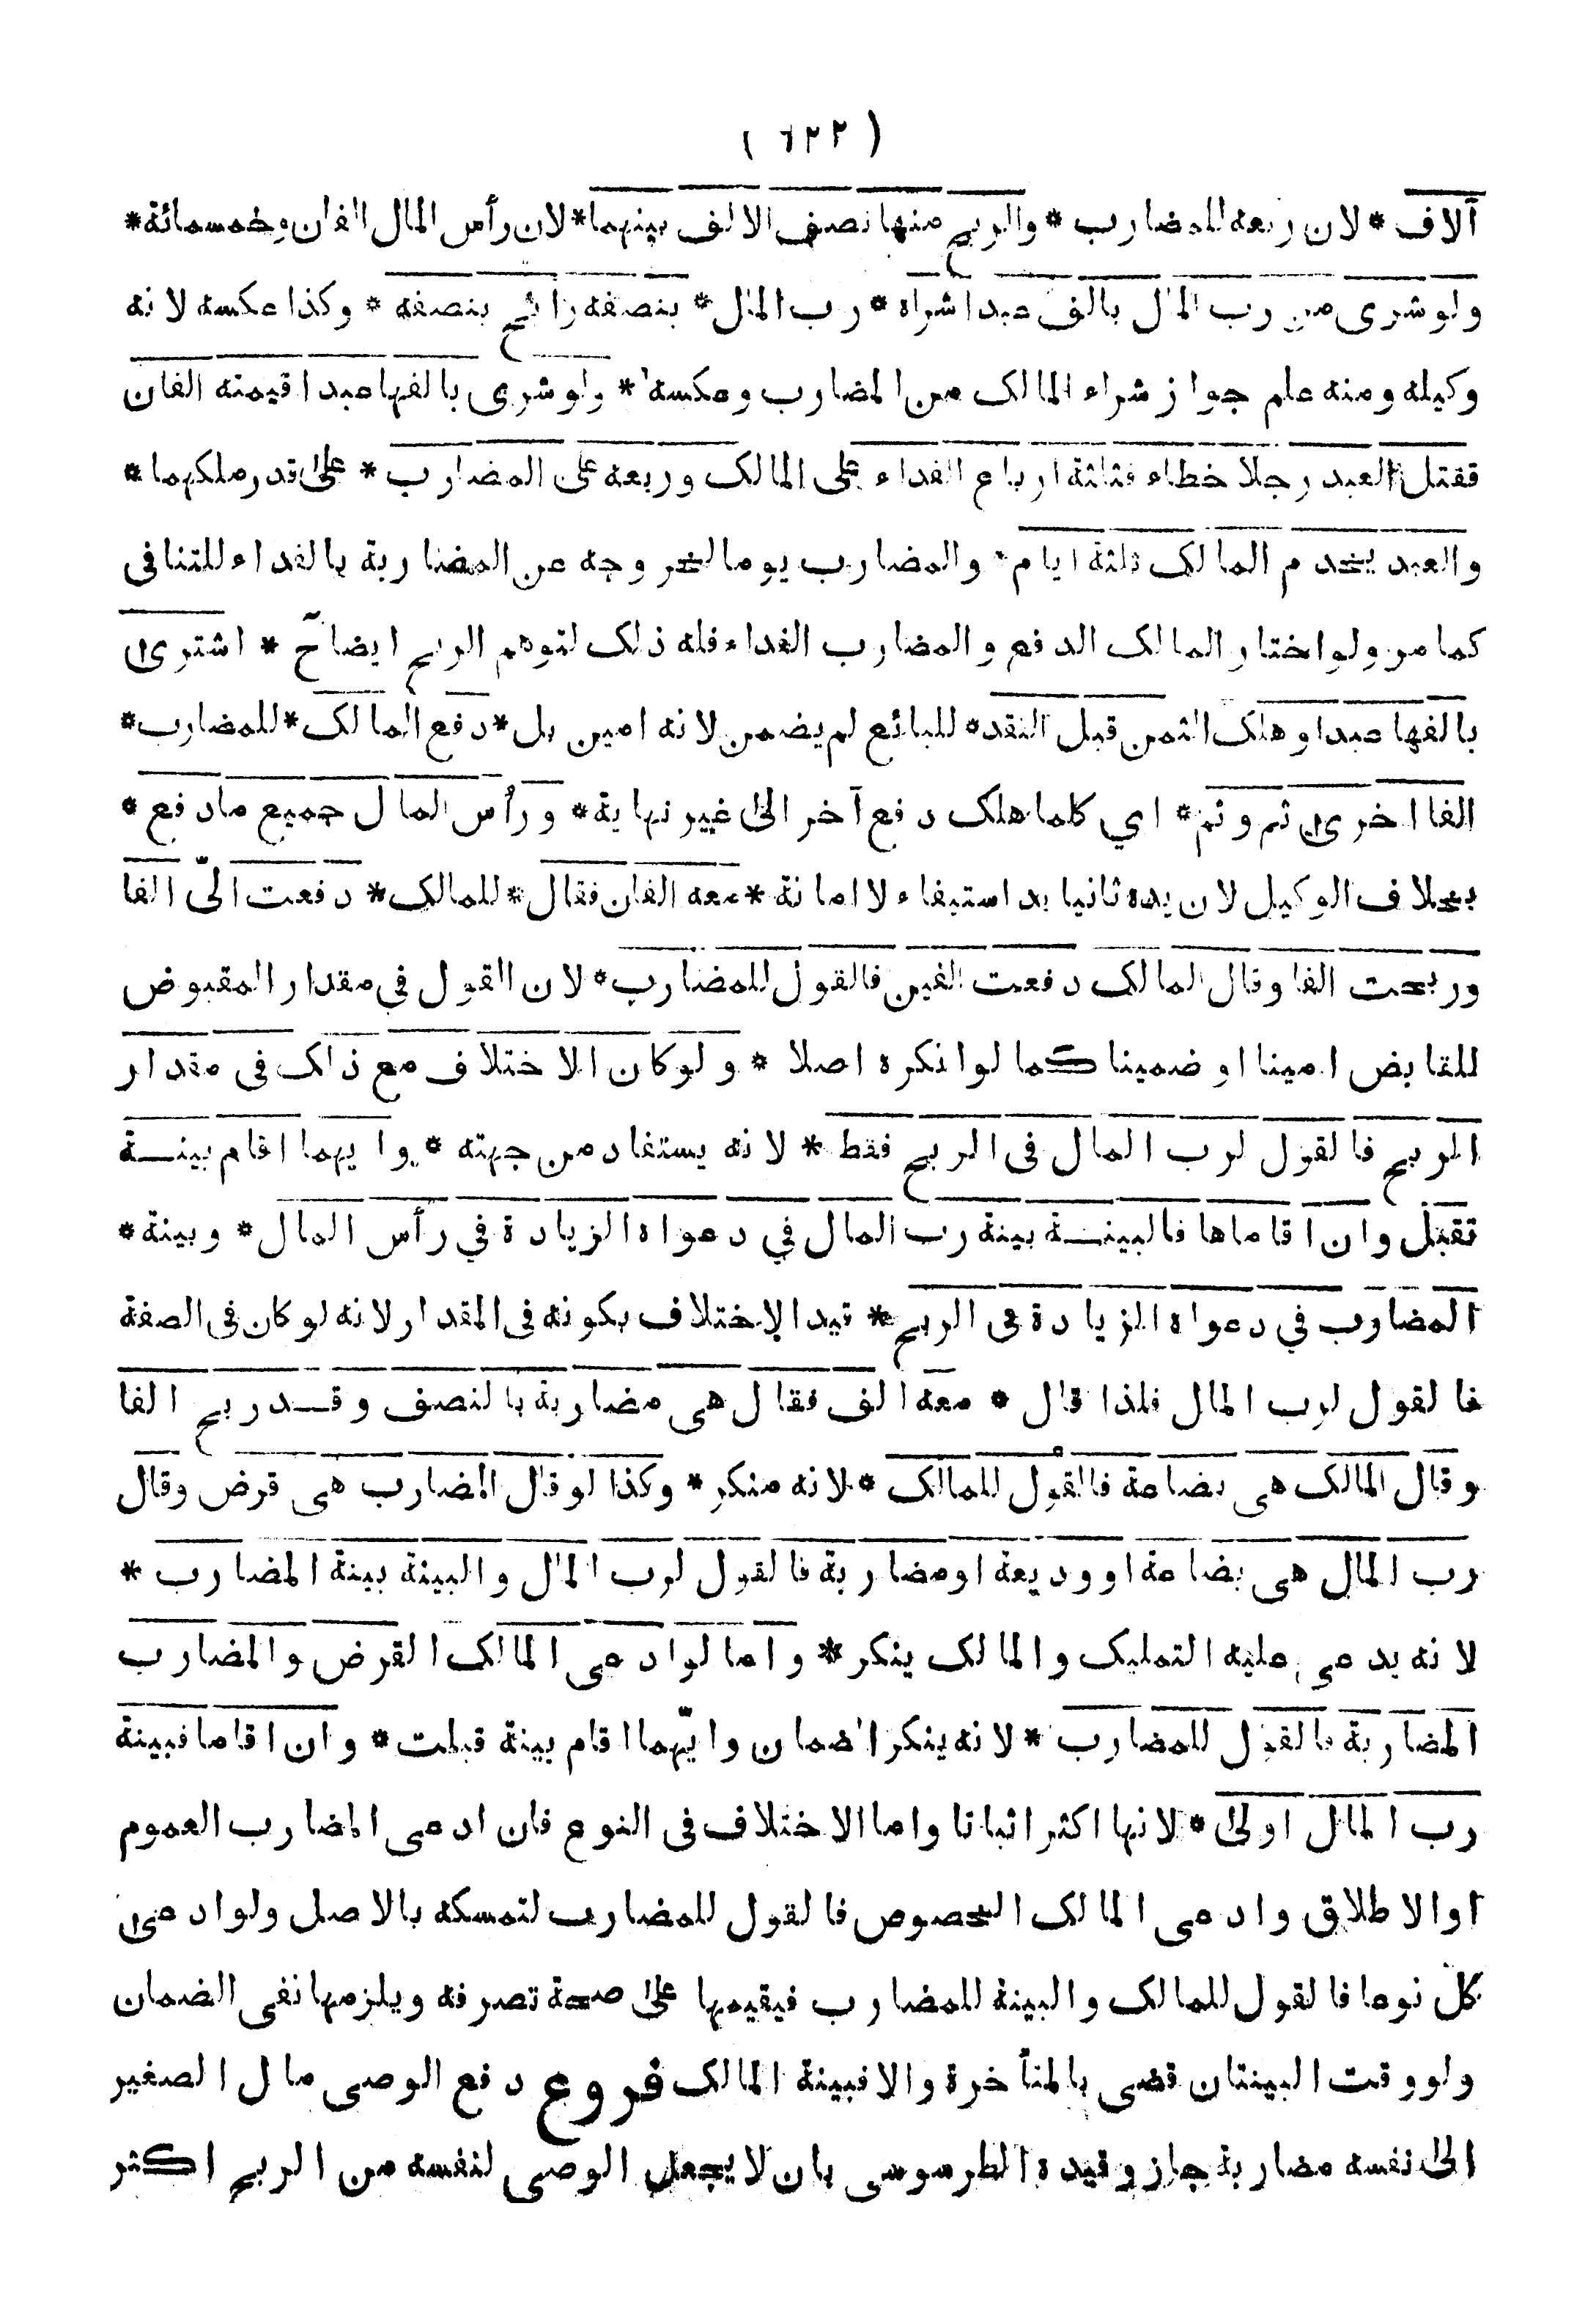 ( ٦٢٢ )
آلاف * لان ربعه للمضارب * والربح منها نصف الالف بينهما * لان رأس المال الفان وخمسمائة *
ولو شرى من رب المال بالف عبدا شراه * رب المال * بنصفه رابح بنصفه * وكذا عكسه لانه
وكيله ومنه علم جواز شراء المالك من المضارب وعكسه * ولو شرى بالفها عبدا قيمته الفان
فقتل العبد رجلا خطاء فثلثة ارباع الفداء على المالك وربعه على المضارب * على قدر ملكهما *
والعبد يخدم المالك ثلثة ايام * والمضارب يوما لخروجه عن المضاربة بالفداء للتنافى
كما مر ولو اختار المالك الدفع والمضارب الفداء فله ذلك لتوهم الربح ايضا ح * اشترى
بالفها عبدا وهلك الثمن قبل النقد * للبائع لم يضمن لانه امين بل * دفع المالك * للمضارب *
الفا اخرى ثم وثم * اي كلما هلك دفع آخر الى غير نهاية * ورأس المال جميع ما دفع *
بخلاف الوكيل لان يده ثانيا يد استيفاء لا امانة * معه الفان فقال * للمالك * دفعت الىّ الفا
وربحت الفا وقال المالك دفعت الفين فالقول للمضارب * لان القول في مقدار المقبوض
للقابض امينا او ضمينا كما لو انكره اصلا * ولو كان الاختلاف مع ذلك فى مقدار
الربح فالقول لرب المال فى الربح فقط * لانه يستفاد من جهته * وايهما اقام بينة
تقبل وان اقاماها فالبينة بينة رب المال في دعواه الزيادة في رأس المال * وبينة *
المضارب في دعواه الزيادة فى الربح * قيد الاختلاف بكونه فى المقدار لانه لو كان فى الصفة
فالقول لرب المال فلذا قال * معه الف فقال هى مضاربة بالنصف وقد ربح الفا
وقال المالك هى بضاعة فالقول للمالك * لانه منكر * وكذا لو قال المضارب هى قرض وقال
رب المال هى بضاعة او وديعة او مضاربة فالقول لرب المال والبينة بينة المضارب *
لانه يدعى عليه التمليك والمالك ينكر * واما لو ادعى المالك القرض والمضارب
المضاربة فالقول للمضارب * لانه ينكر الضمان وايّهما اقام بينة قبلت * وان اقاما فبينة
رب المال اولى * لانها اكثر اثباتا واما الاختلاف فى النوع فان ادعى المضارب العموم
او الاطلاق وادعى المالك الخصوص فالقول للمضارب لتمسكه بالاصل ولو ادعى
كل نوعا فالقول للمالك والبينة للمضارب فيقيمها على صحة تصرفه ويلزمها نفى الضمان
ولو وقت البينتان قضى بالمتأخرة والا فبينة المالك فروع دفع الوصى مال الصغير
الى نفسه مضاربة جاز وقيده الطرسوسى بان لا يجعل الوصى لنفسه من الربح اكثر